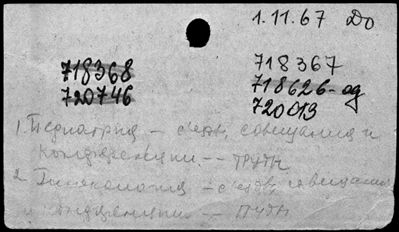 1.11.67 До
718368
720746
718367
718626-ад
720013
1. Педиатрия – съезд, совещания и
конференции. -- Труды
2. Гинекология – съезд, совещания
и конференции -- Труды